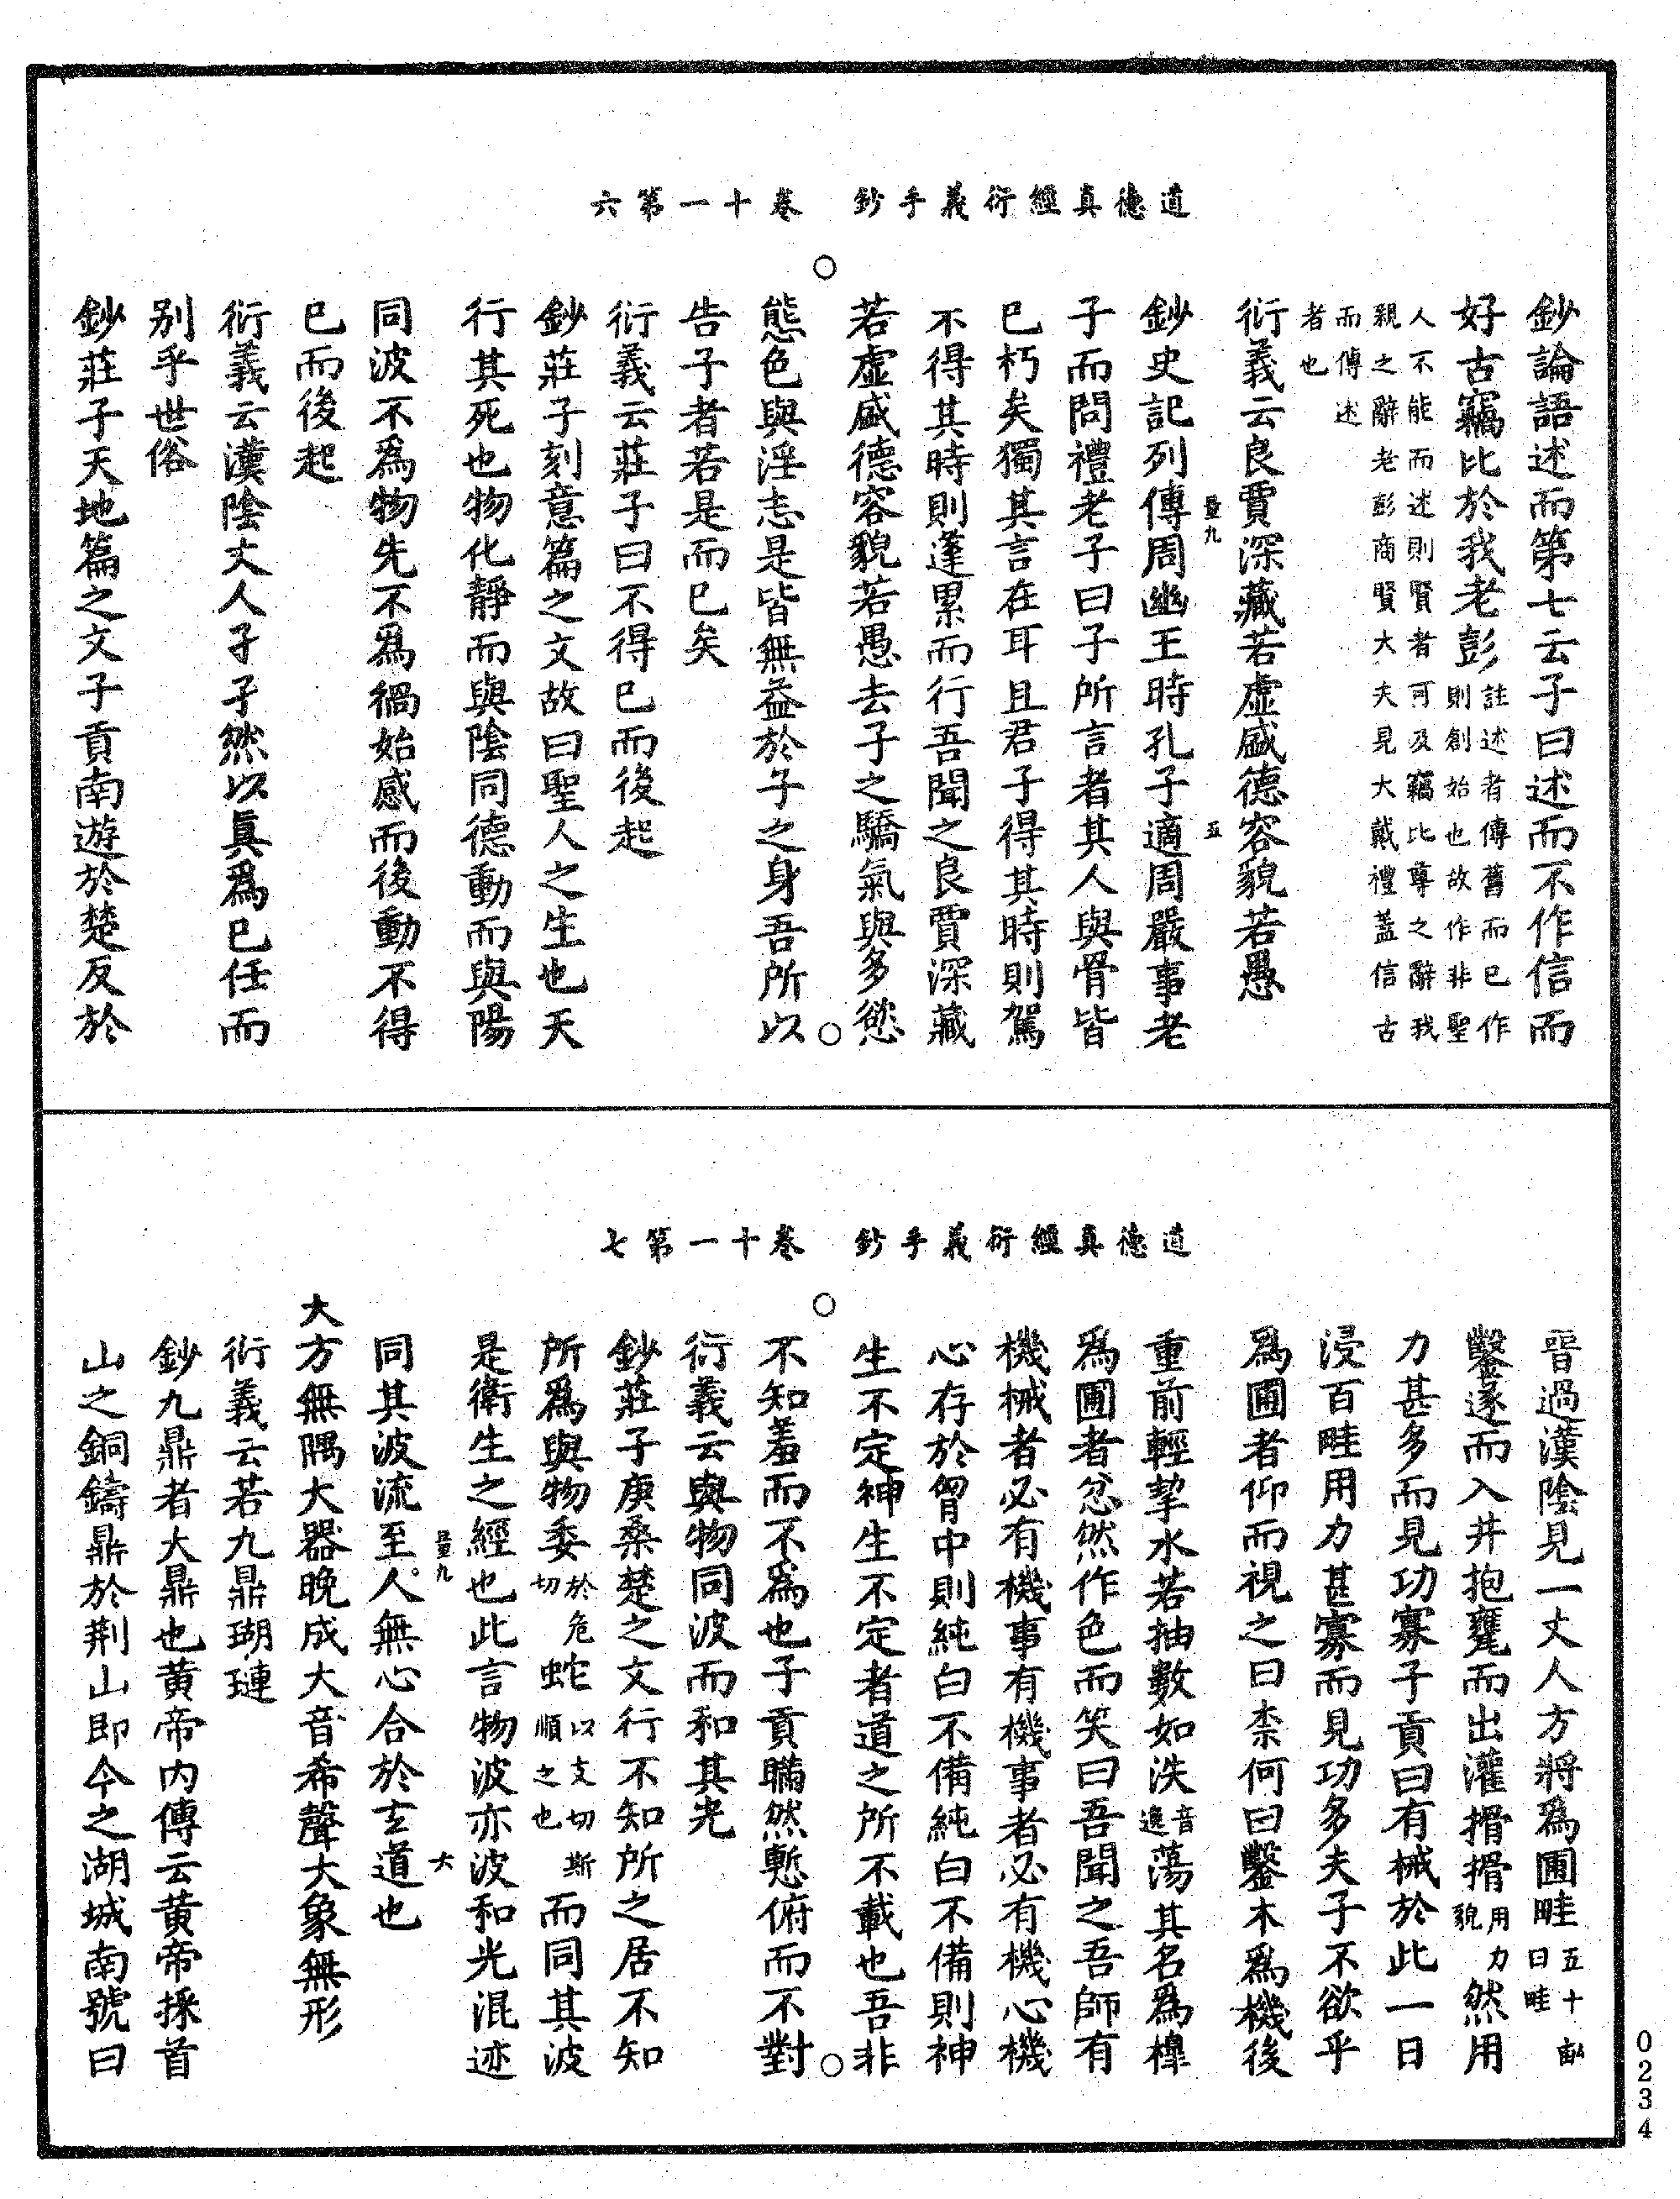 道德真經衍義手鈔　卷十一第六
鈔論語述而第七云子曰述而不作信而
好古竊比於我老彭註述者傳舊而已作
則創始也故作非聖
人不能而述則賢者可及竊比尊之辭我
親之辭老彭商賢大夫見大戴禮蓋信古
而傳述
者也
衍義云良賈深藏若虛盛德容貌若愚
量九　五
鈔史記列傳周幽王時孔子適周嚴事老
子而問禮老子曰子所言者其人與骨皆
已朽矣獨其言在耳且君子得其時則駕
不得其時則逢累而行吾聞之良賈深藏
若虛盛德容貌若愚去子之驕氣與多慾
態色與淫志是皆無益於子之身吾所以
告子者若是而已矣
衍義云莊子曰不得已而後起
鈔莊子刻意篇之文故曰聖人之生也天
行其死也物化靜而與陰同德動而與陽
同波不爲物先不爲禍始感而後動不得
已而後起
衍義云漢陰丈人孑孑然以眞爲已任而
别乎世俗
鈔莊子天地篇之文子貢南遊於楚反於
道德真經衍義手鈔　卷十一第七
晋過漢陰見一丈人方將爲圃畦五十畝
曰畦
鑿遂而入井抱甕而出灌搰搰用力
貌
然用
力甚多而見功寡子貢曰有械於此一日
浸百畦用力甚寡而見功多夫子不欲乎
爲圃者仰而視之曰柰何曰鑿木爲機後
重前輕挈水若抽數如泆音
逸
蕩其名爲槹
爲圃者忿然作色而笑曰吾聞之吾師有
機械者必有機事有機事者必有機心機
心存於胷中則純白不備純白不備則神
生不定神生不定者道之所不載也吾非
不知羞而不爲也子貢瞞然慙俯而不對
衍義云與物同波而和其光
鈔莊子庚桑楚之文行不知所之居不知
所爲與物委於危
切
蛇以支切斯
順之也
而同其波
是衛生之經也此言物波亦波和光混迹
量九　大
同其波流至人無心合於玄道也
大方無隅大器晚成大音希聲大象無形
衍義云若九鼎瑚璉
鈔九鼎者大鼎也黄帝内傳云黄帝採首
山之銅鑄鼎於荆山即今之湖城南號曰
0234